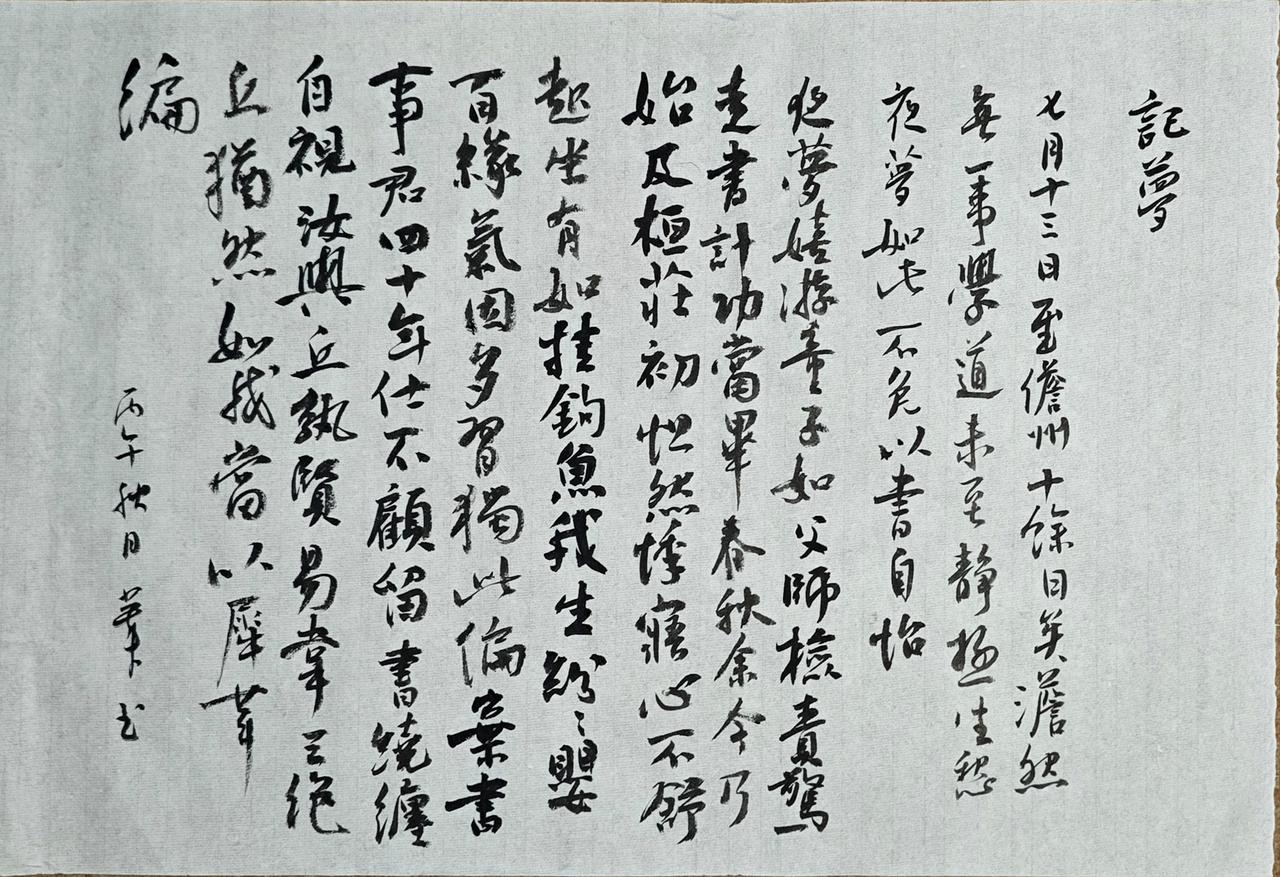 記夢
七月十三日至儋州十餘日矣澹然
無一事學道未至靜極生愁
夜夢如此不免以書自怡
夜夢嬉游童子如父師檢責驚
走書計功當畢春秋余今乃
始及桓莊初怛然悸寤心不舒
起坐有如挂鉤魚我生紛〻嬰
百緣氣因多習獨此偏棄書
事君四十年仕不顧留書繞纏
自視汝與丘孰賢易韋三絕
丘猶然如我當以犀革
編
丙午秋日